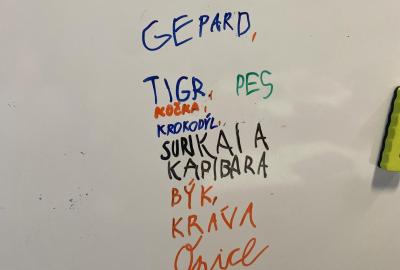 GEPARD,
TIGR, PES
KOČKA,
KROKODÝL,
SURIKATA A
KAPIBARA
BÝK,
KRAVA
Opice